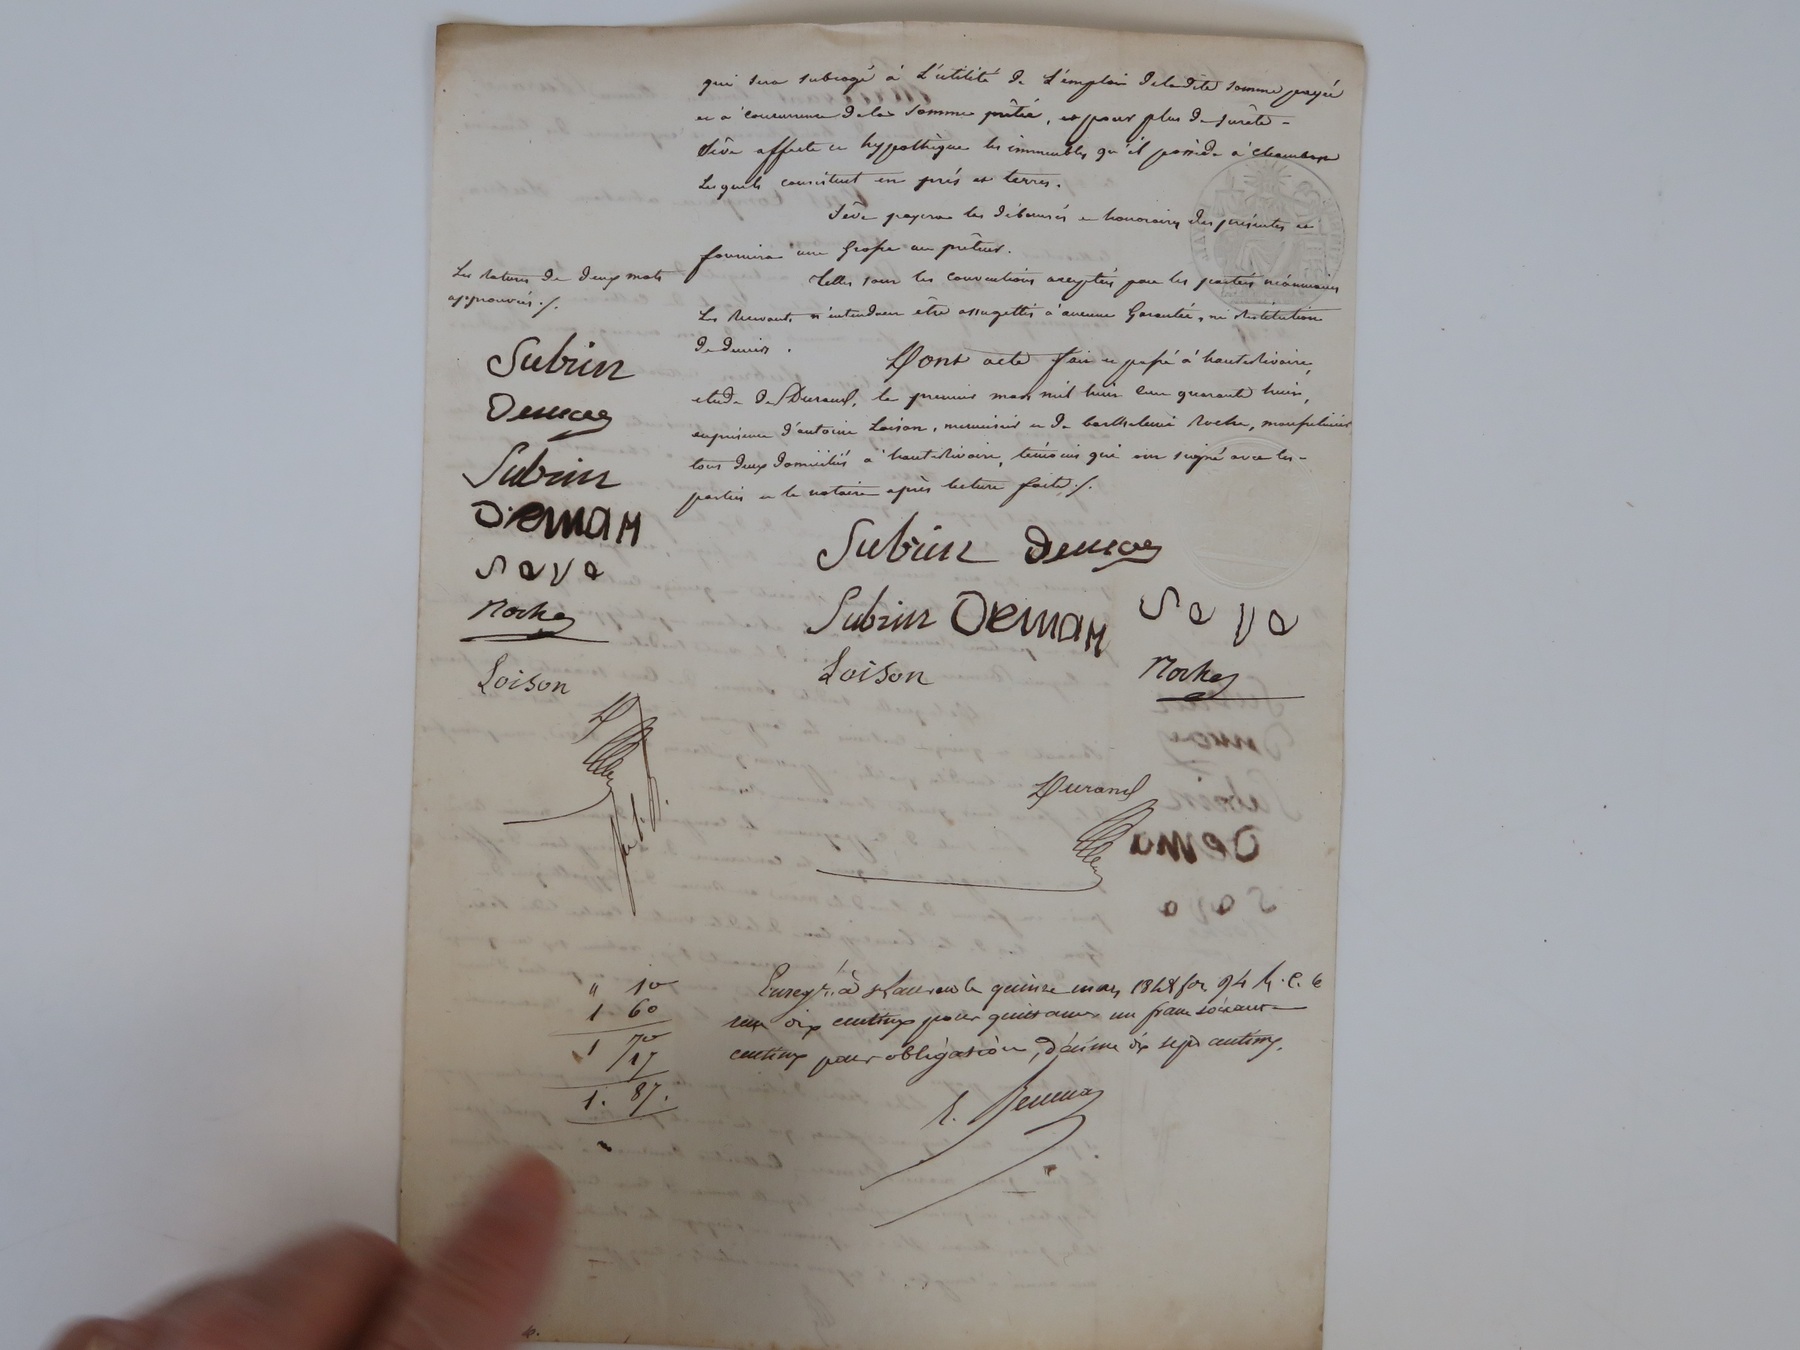 qui sera subrogé à l'utilité de l'emploi de ladite somme payée
et à concurrence de la somme prêtée, et pour plus de sureté -
Sève affecte en hypothèque les immeubles qu'il possède à
lesquels consistent en prés et terres.
Sève payera les déboursés et honoraires des présentes et
fournira une Grosse au prêteur.
Telles sont les conventions acceptées par les parties
Les n'entendent être assugettis à aucune Garantie, ni restitution
de deniers.
Dont acte fait et passé à hauterivoire,
etude de Durand, le premier mars mil huit cent quarante huit,
en présence d'antoine Loison, menuisier et de barthelemi Roche,
tous deux domiciliés à hauterivoire, témoins qui ont signé avec les -
parties et le notaire après lecture faite ./.
La rature de deux mots
approuvés ./.
Subrin
Subrin
Deman
Seve
Roche
Loison
Subrin
Subrin Deman Seve
Loison Roche
Durand
" 10
1 60
1 70
17
1. 87.
Enregt. à St Laurent le quinze mars 1848 fo 94 R. C. 6
reçu dix centimes pour quittance un franc soixante
centimes pour obligation, décime dix sept centimes.